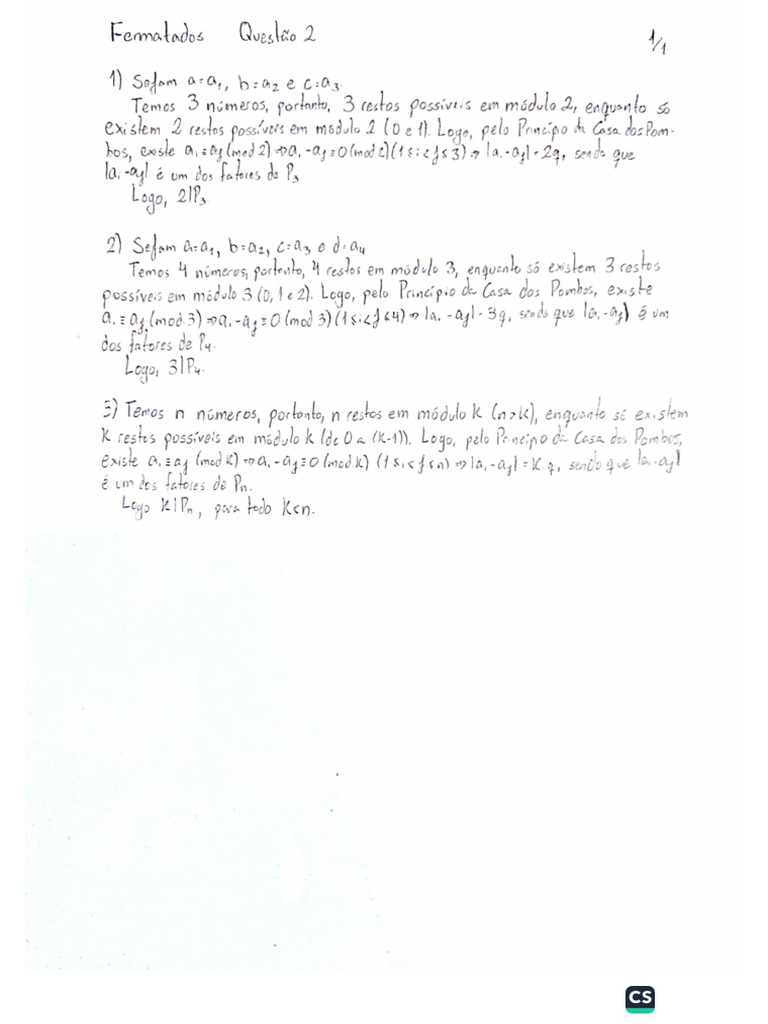 Fermatados Questão 2 1/1
1) Sejam a=a₁, b=a₂ e c=a₃.
Temos 3 números, portanto, 3 restos possíveis em módulo 2, enquanto só
existem 2 restos possíveis em módulo 2 (0 e 1). Logo, pelo Princípio da Casa dos Pom-
bos, existe aᵢ≡aⱼ(mod 2)⇒aᵢ-aⱼ≡0(mod 2)(1≤i<j≤3)⇒|aᵢ-aⱼ|=2q, sendo que
|aᵢ-aⱼ| é um dos fatores de P₃
Logo, 2|P₃
2) Sejam a=a₁, b=a₂, c=a₃ e d=a₄
Temos 4 números, portanto, 4 restos em módulo 3, enquanto só existem 3 restos
possíveis em módulo 3 (0, 1 e 2). Logo, pelo Princípio da Casa dos Pombos, existe
aᵢ≡aⱼ(mod 3)⇒aᵢ-aⱼ≡0(mod 3)(1≤i<j≤4)⇒|aᵢ-aⱼ|=3q, sendo que |aᵢ-aⱼ| é um
dos fatores de P₄.
Logo, 3|P₄.
3) Temos n números, portanto, n restos em módulo K (n>K), enquanto só existem
K restos possíveis em módulo K (de 0 a (K-1)). Logo, pelo Princípio da Casa dos Pombos,
existe aᵢ≡aⱼ (mod K)⇒aᵢ-aⱼ≡0(mod K) (1≤i<j≤n)⇒|aᵢ-aⱼ|=K.q, sendo que |aᵢ-aⱼ|
é um dos fatores de Pₙ.
Logo K|Pₙ, para todo K<n.
CS